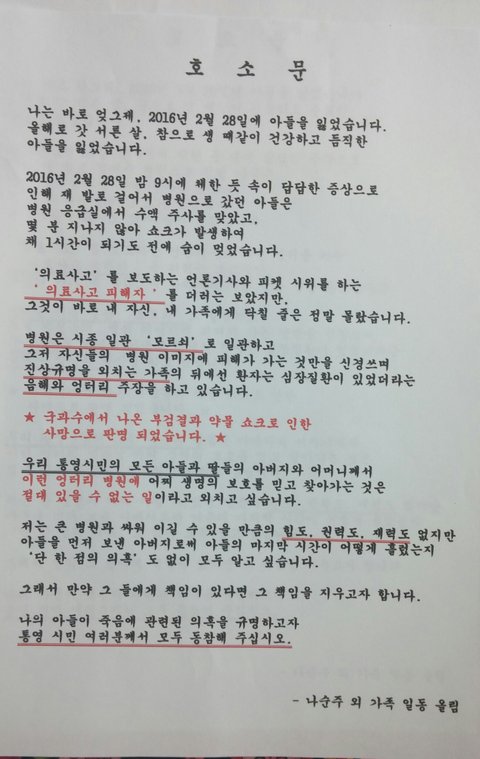 호 소 문
나는 바로 엊그제, 2016년 2월 28일에 아들을 잃었습니다.
올해로 갓 서른 살, 참으로 생 때같이 건강하고 듬직한
아들을 잃었습니다.
2016년 2월 28일 밤 9시에 체한 듯 속이 답답한 증상으로
인해 제 발로 걸어서 병원으로 갔던 아들은
병원 응급실에서 수액 주사를 맞았고,
몇 분 지나지 않아 쇼크가 발생하여
채 1시간이 되기도 전에 숨이 멎었습니다.
'의료사고'를 보도하는 언론기사와 피켓 시위를 하는
' 의료사고 피해자 ' 를 더러는 보았지만,
그것이 바로 내 자신, 내 가족에게 닥칠 줄은 정말 몰랐습니다.
병원은 시종 일관 '모르쇠'로 일관하고
그저 자신들의 병원 이미지에 피해가 가는 것만을 신경쓰며
진상규명을 외치는 가족의 뒤에선 환자는 심장질환이 있었더라는
음해와 엉터리 주장을 하고 있습니다.
★ 국과수에서 나온 부검결과 약물 쇼크로 인한
사망으로 판명 되었습니다. ★
우리 통영시민의 모든 아들과 딸들의 아버지와 어머니께서
이런 엉터리 병원에 어찌 생명의 보호를 믿고 찾아가는 것은
절대 있을 수 없는 일이라고 외치고 싶습니다.
저는 큰 병원과 싸워 이길 수 있을 만큼의 힘도, 권력도, 재력도 없지만
아들을 먼저 보낸 아버지로써 아들의 마지막 시간이 어떻게 흘렀는지
'단 한 점의 의혹' 도 없이 모두 알고 싶습니다.
그래서 만약 그 들에게 책임이 있다면 그 책임을 지우고자 합니다.
나의 아들이 죽음에 관련된 의혹을 규명하고자
통영 시민 여러분께서 모두 동참해 주십시오.
- 나순주 외 가족 일동 올림